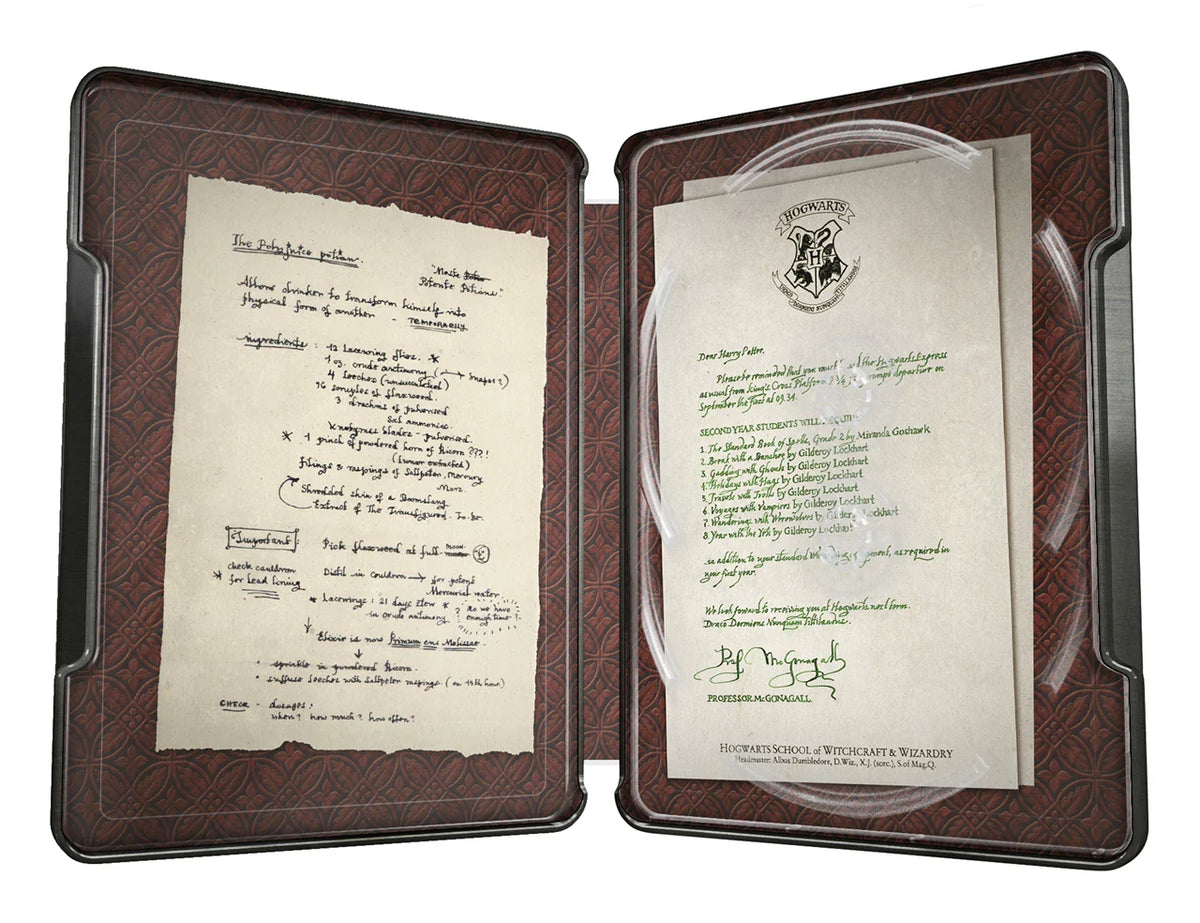 The Polyjuice potion.
"Moste Potio
Potente Potions"
Allows drinker to transform himself into
physical form of another - TEMPORARILY
ingredients : 12 Lacewing flies. *
1 oz. crude antimony ( → Snape ? )
4 leeches (unsucculated)
16 scruples of fluxweed.
3 drachms of pulverised
Sal ammoniac.
Knotgrass blades - pulverised.
* 1 pinch of powdered horn of Bicorn ???!
(lunar extracted)
Filings & raspings of Saltpeter, Mercury
Mars.
Shredded skin of a Boomslang
Extract of The Transfigured. To-be.
Important :
Pick fluxweed at full moon
check cauldron
* for Lead lining
Distil in Cauldron → for potent
Mercurial water
* Lacewings : 21 days Stew
in crude antimony
? do we have
enough time ?
↓ Elixir is now Primum ens Melissae
↓
• sprinkle in powdered Bicorn.
• suffuse leeches with Saltpeter raspings. (on 14th hour.)
CHECK - dosages :
when ? how much ? how often ?
HOGWARTS
H
DRACO DORMIENS NUNQUAM TITILLANDUS
Dear Harry Potter,
Please be reminded that you must the Hogwarts Express
as usual from King's Cross Platform 9 3/4 prompt departure on
September the first at 09.34.
SECOND YEAR STUDENTS WILL REQUIRE
1. The Standard Book of Spells, Grade 2 by Miranda Goshawk
2. Break with a Banshee by Gilderoy Lockhart
3. Gadding with Ghouls by Gilderoy Lockhart
4. Holidays with Hags by Gilderoy Lockhart
5. Travels with Trolls by Gilderoy Lockhart
6. Voyages with Vampires by Gilderoy Lockhart
7. Wanderings with Werewolves by Gilderoy Lockhart
8. Year with the Yeti by Gilderoy Lockhart
..in addition to your standard equipment, as required in
your first year.
We look forward to receiving you at Hogwarts next term.
Draco Dormiens Nunquam Titillandus.
Prof. McGonagall
PROFESSOR. McGONAGALL
HOGWARTS SCHOOL of WITCHCRAFT & WIZARDRY
Headmaster: Albus Dumbledore, D.Wiz., X.J. (sorc.), S.of Mag.Q.